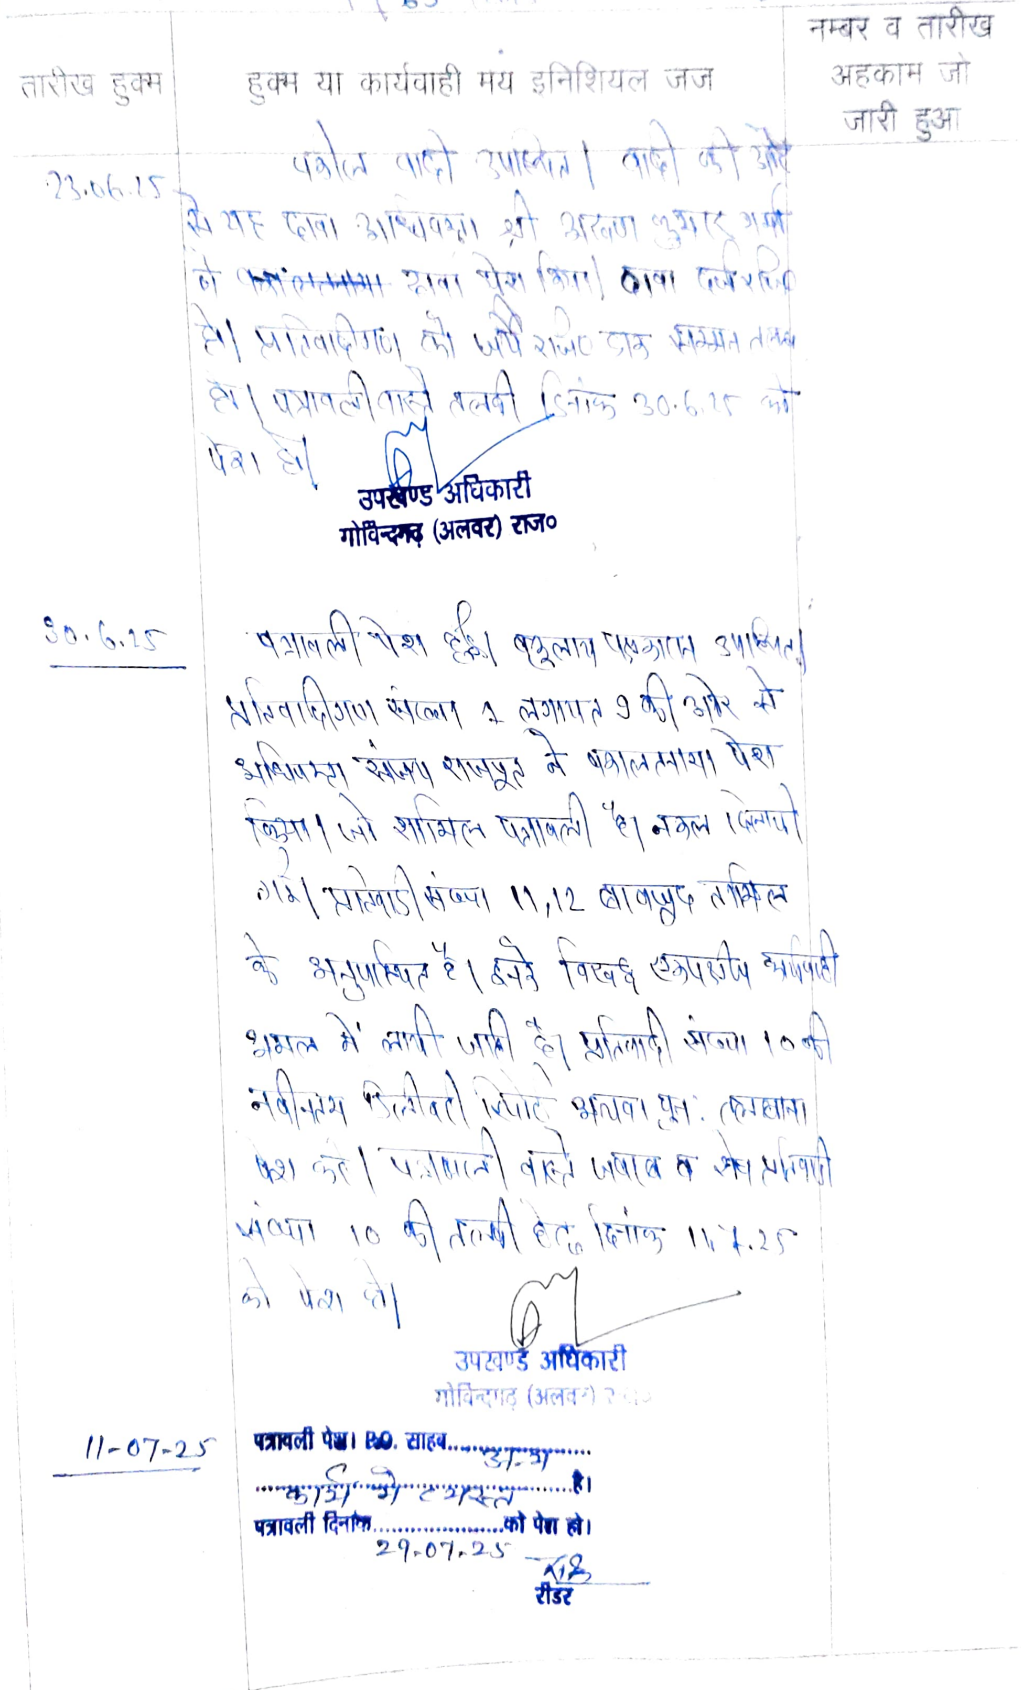 नम्बर व तारीख
तारीख हुक्म हुक्म या कार्यवाही मय इनिशियल जज अहकाम जो
जारी हुआ
23.06.25 वकील वादी उपस्थित। वादी की ओर
से यह दावा अधिवक्ता श्री अरुण कुमार शर्मा
ने दावा पेश किया। दावा दर्ज रजि०
हो। प्रतिवादीगण को जर्ये रजि० डाक सम्मन तलब
हो। पत्रावली वास्ते तलबी दिनांक 30.6.25 को
पेश हो।
उपखण्ड अधिकारी
गोविन्दगढ़ (अलवर) राज०
30.6.25 पत्रावली पेश हुई। वकुलाय पक्षकारान उपस्थित।
प्रतिवादीगण संख्या 1 लगायत 9 की ओर से
अधिवक्ता संजय राजपूत ने वकालतनामा पेश
किया। जो शामिल पत्रावली है। नकल दिलायी
गई। प्रतिवादी संख्या 11,12 बावजूद तामिल
के अनुपस्थित है। इनके विरुद्ध एकपक्षीय कार्यवाही
अमल में लायी जाती है। प्रतिवादी संख्या 10 की
नवीनतम डिलीवरी रिपोर्ट अथवा पुन: तलबाना
पेश करे। पत्रावली वास्ते जवाब व शेष प्रतिवादी
संख्या 10 की तलबी हेतु दिनांक 11.7.25
को पेश हो।
उपखण्ड अधिकारी
गोविन्दगढ़ (अलवर)
11-07-25 पत्रावली पेश। P.O. साहब अन्य
कार्य में व्यस्त है।
पत्रावली दिनांक 29-07-25 को पेश हो।
रीडर